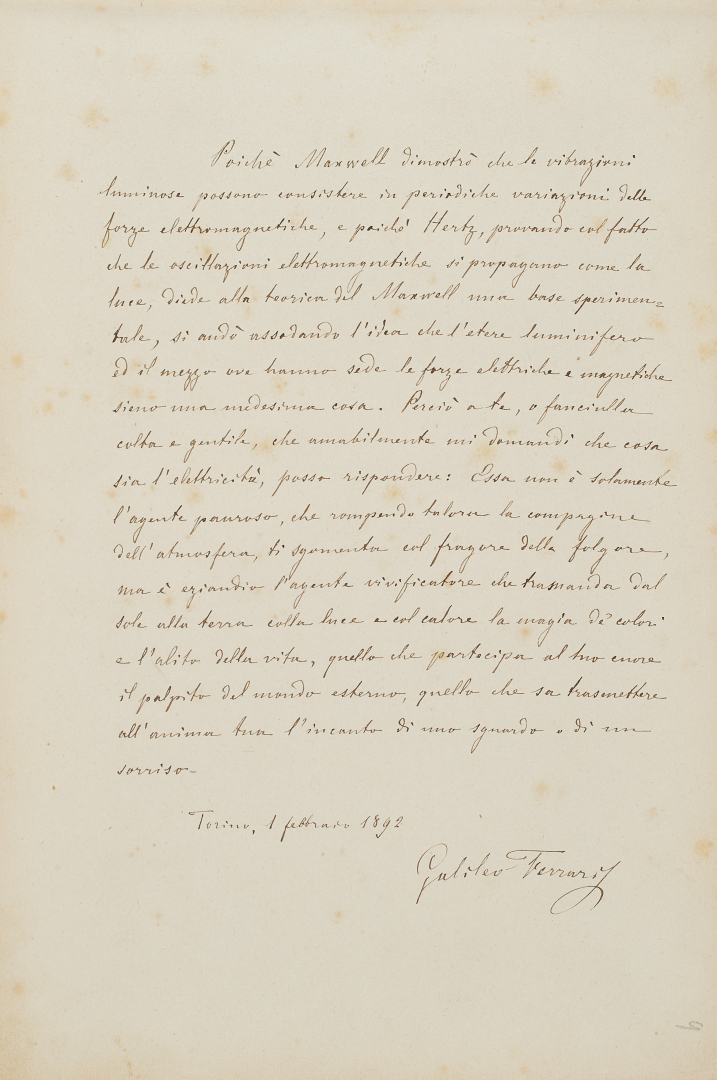 Poichè Maxwell dimostrò che le vibrazioni
luminose possono consistere in periodiche variazioni delle
forze elettromagnetiche, e poichè Hertz, provando col fatto
che le oscillazioni elettromagnetiche si propagano come la
luce, diede alla teorica del Maxwell una base sperimen=
tale, si andò assodando l'idea che l'etere luminifero
ed il mezzo ove hanno sede le forze elettriche e magnetiche
sieno una medesima cosa. Perciò a te, o fanciulla
colta e gentile, che amabilmente mi domandi che cosa
sia l'elettricità, posso rispondere: Essa non è solamente
l'agente pauroso, che rompendo talora la compagine
dell'atmosfera, ti sgomenta col fragore della folgore,
ma è eziandio l'agente vivificatore che tramanda dal
sole alla terra colla luce e col calore la magia de' colori
e l'alito della vita, quello che partecipa al tuo cuore
il palpito del mondo esterno, quello che sa trasmettere
all'anima tua l'incanto di uno sguardo o di un
sorriso.
Torino, 1 febbraio 1892
Galileo Ferraris